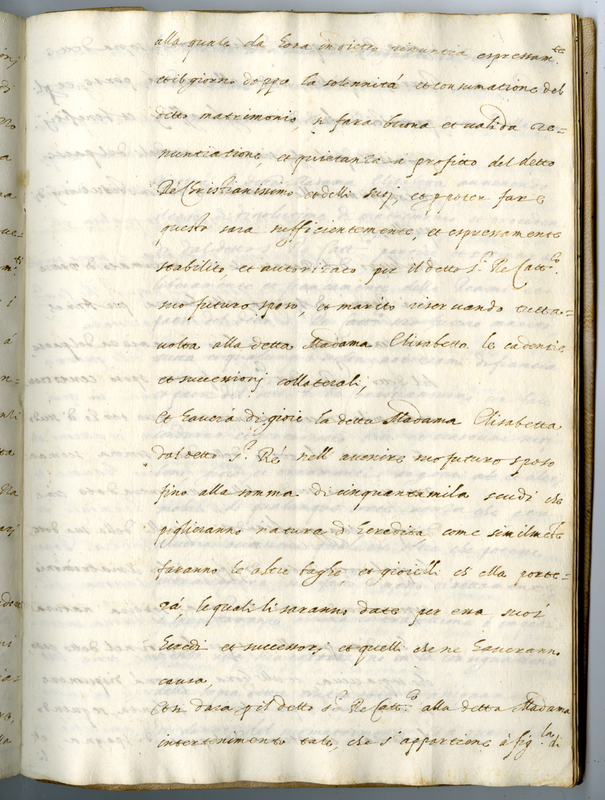 alla quale da hora inanzi renuntia espressam.te
et il giorno doppo la solennità et consumatione del
detto matrimonio, ne fara buona et valida re=
nuntiatione, et quietanza a profitto del detto
Re Christianissimo et delli suoj, et poter far
questo sara sufficientemente, et espressamente
stabilito et autorizato per il detto S.r Re Catt.co
suo futuro sposo, et marito riservando tutta=
volta alla detta Madama Elisabetta le cadentie
et successionj collaterali,
Et haverà di gioie la detta Madama Elisabetta
dal detto S.r Rè nell' avenire suo futuro sposo
fino alla somma di cinquantamila scudi che
piglieranno natura d' heredità come similmte
faranno le altre baghe, et gioielli ch' ella porte=
rà, le quali li saranno date per essa suoi
heredi et successorj et quelli che ne haveranno
causa,
Et darà il detto S.r Re Catt.co alla detta Madama
intertenimento tale, che s' appartiene à fig.la di